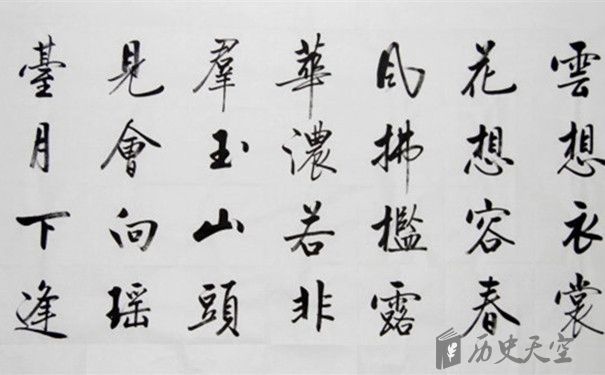 雲想衣裳
花想容春
風拂檻露
華濃若非
羣玉山頭
見會向瑶
臺月下逢
历史天空